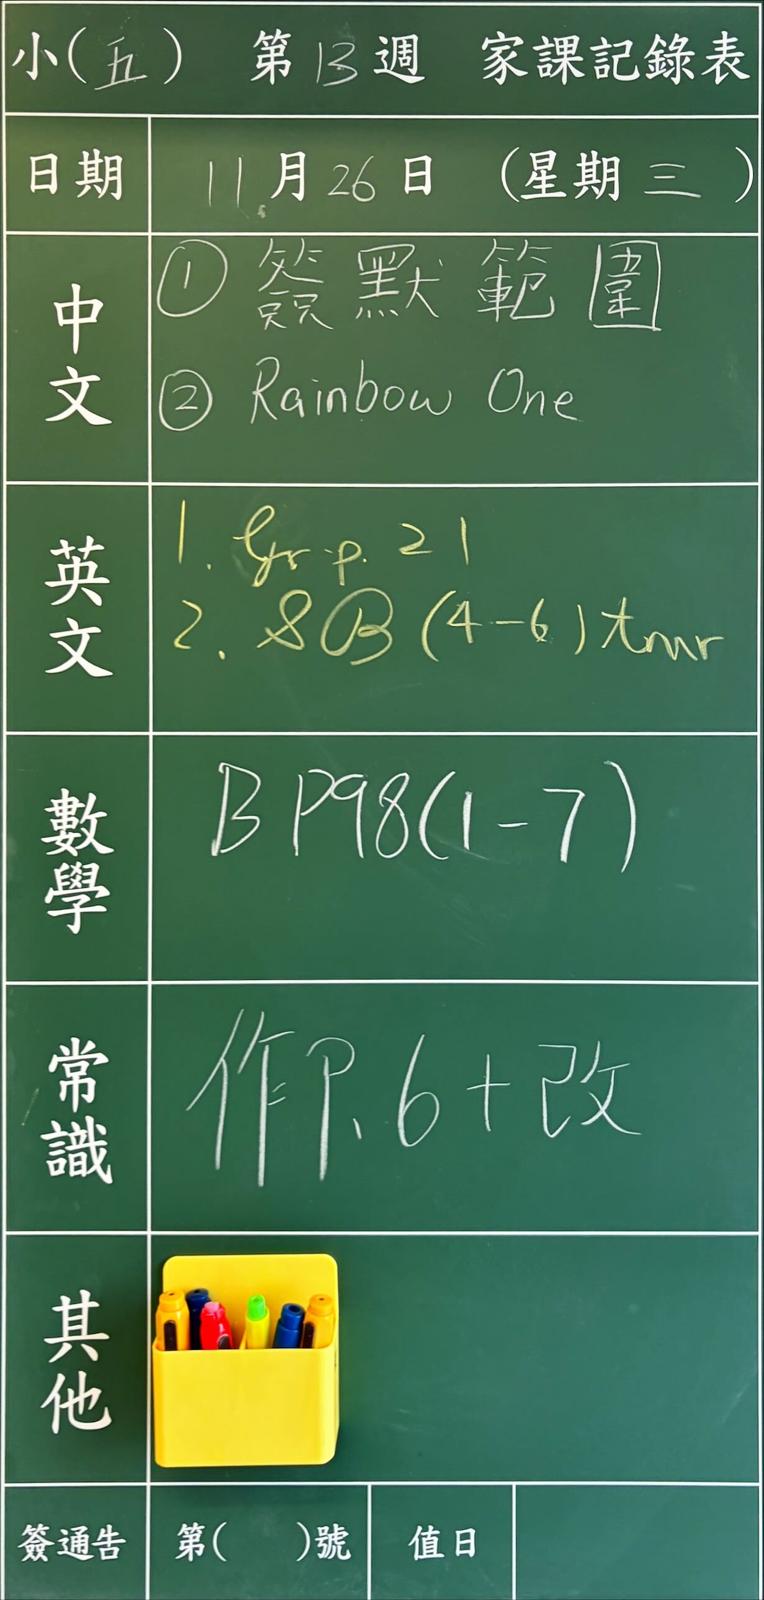 小(五) 第13週 家課記錄表
日期 11月26日 (星期三)
中文
① 簽默範圍
② Rainbow One
英文
1. Gr. p. 21
2. SB (4-6) tmr
數學
B P98(1-7)
常識
作P.6+改
其他
簽通告 第( )號 值日